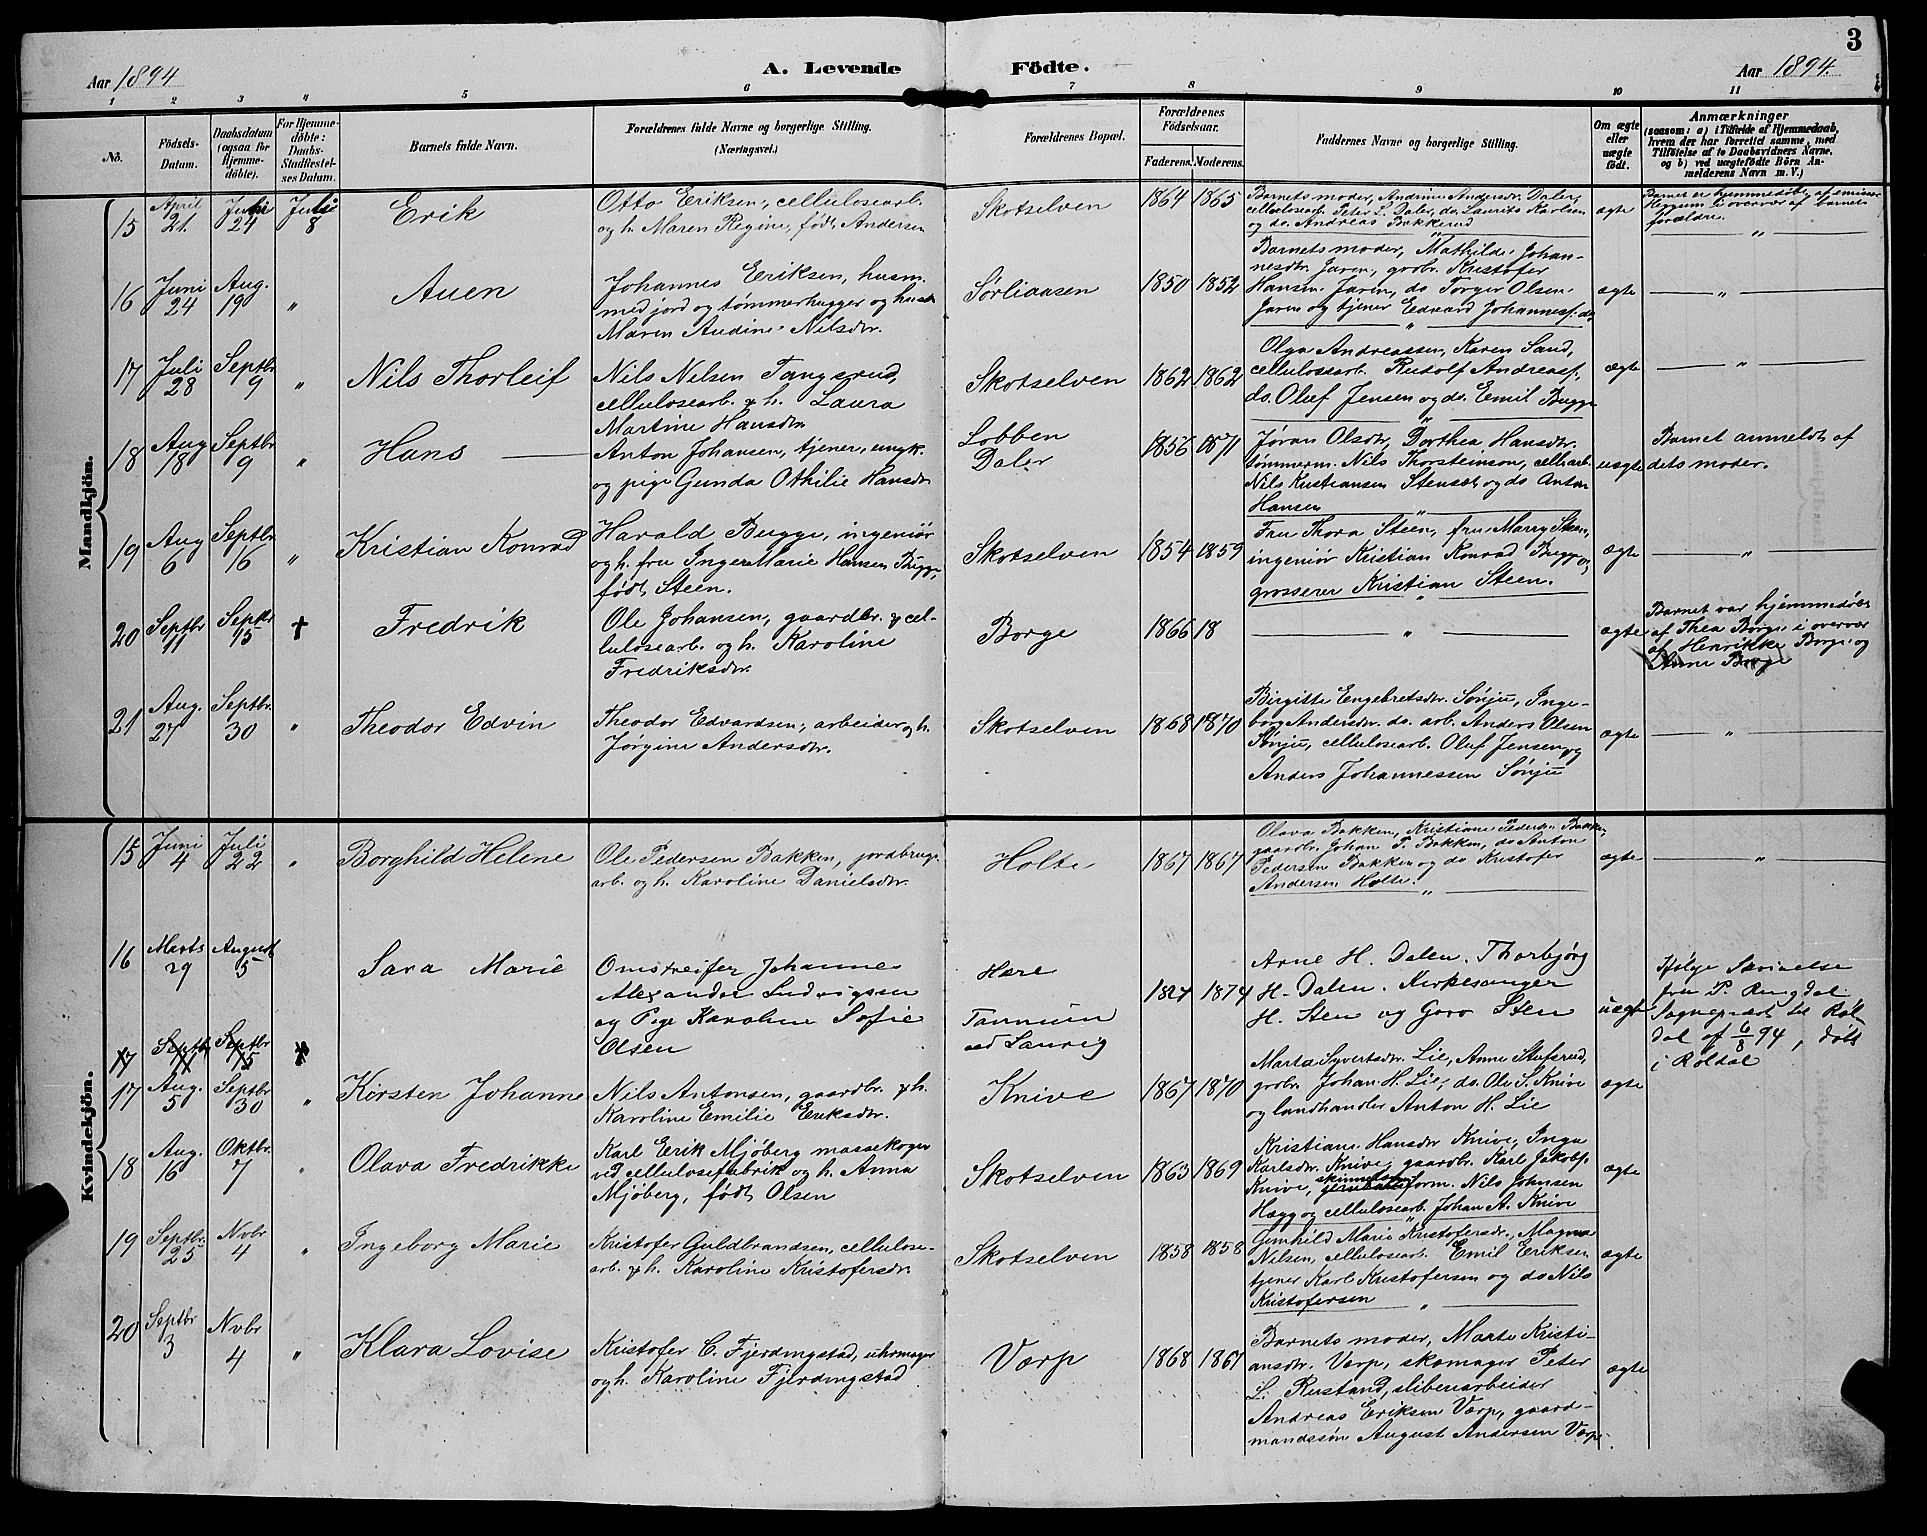 3
Aar 1894
A. Levende
Födte.
Aar 1894.
1 2 3 4 5 6 7 8 9 10 11
Nö.
Födsels-
Datum.
Daabsdatum
(ogsaa for
Hjemme-
döbte).
For Hjemme-
döbte:
Daabs-
Stadfæstel-
ses Datum.
Barnets fulde Navn.
Forældrenes fulde Navne og borgerlige Stilling.
(Næringsvei.)
Forældrenes Bopæl.
Forældrenes
Födselsaar.
Faderens.
Moderens.
Faddernes Navne og borgerlige Stilling.
Om ægte
eller
uægte
födt.
Anmærkninger
(saasom: a) i Tilfælde af Hjemmedaab,
hvem der har forrettet samme, med
Tilföielse af to Daabsvidners Navne,
og b) ved uægtefödte Börn An-
melderens Navn m. V.)
Mandkjön.
15
April
21
Juni
24
Juli
8
Erik
Otto Eriksen, cellulosearb.
og h. Maren Regine, født Andersen
Skotselven
1864 1865
Barnets moder, Andrine Andersdr. Daler,
cellulosearb. Peter L. Daler, do. Laurits Karlsen
og do. Andreas Bakkerud
ægte
Barnet er hjemmedøbt af emissær
Heggum i overvær af barnets
forældre.
16
Juni
24
Aug.
19
"
Auen
Johannes Eriksen, husm.
med jord og tømmerhugger og hust.
Maren Andine Nilsdr.
Sørliaasen
1850 1852
Barnets moder, Mathilde Johan-
nesdtr. Jaren, gdbr. Kristofer
Hansen Jaren, do Torger Olsen
Jaren og tjener Edvard Johanness. do
ægte
"
17
Juli
28
Septbr
9
"
Nils Thorleif
Nils Nilsen Tangerud,
cellulosearb. & h. Laura
Martine Hansdr.
Skotselven
1862 1862
Olga Andreassen, Karen Sand,
cellulosearb. Rudolf Andreass.,
do. Oluf Jensen og do. Emil Bugge
ægte
"
18
Aug
18
Septbr
9
"
Hans
Anton Johansen, tjener, ungk.
og pige Gunda Othilie Hansdr
Lobben
Daler
1856 1871
Jøran Olsdr, Dorthea Hansdr.
tømmerm. Nils Thorsteinson, cell.arb.
Nils Kristiansen Stensæt og do Anton
Hansen
uægte
Barnet anmeldt af
dets moder.
19
Aug
6
Septbr
16
"
Kristian Konrad
Harald Bugge, ingeniør
og h. fru Inger Marie Hansen Bugge,
født Steen.
Skotselven
1854 1859
Fru Thora Steen, fru Marry Steen,
ingeniør Kristian Konrad Bugge og
grosserer Kristian Steen.
ægte
"
20
Septbr
11
Septbr
15
†
Fredrik
Ole Johansen, gaardbr. & cel-
lulosearb. og h. Karoline
Fredriksdr.
Borge
1866 18
"
ægte
Barnet var hjemmedøbt
af Thea Borge i overvær
af Henrikke Borge og
Anne Borge
21
Aug.
27
Septbr.
30
"
Theodor Edvin
Theodor Edvardsen, arbeider og h.
Jørgine Andersdr.
Skotselven
1868 1870
Birgitte Engebretsdr. Sønju, Inge-
borg Andersdr. do. arb. Anders Olsen
Sønju, cellulosearb. Oluf Jensen og
Anders Johannessen Sønju
ægte
"
Kvindekjön.
15
Juni
4
Juli
22
"
Borghild Helene
Ole Pedersen Bakken, jordbrugs-
arb. og h. Karoline Danielsdr.
Holte
1867 1867
Olava Bakken, Kristiane Pedersdr. Bakken,
gaardbr. Johan P. Bakken, do Anton
Pedersen Bakken og do Kristofer
Andersen Holte.
ægte
"
16
Marts
29
August
5
Sara Marie
Omstreifer Johannes
Alexander Ludvigsen
og Pige Karoline Sofie
Olsen
Hære
Tannum
ved Laurvig
1874
Arne H. Dalen. Thorbjørg
H. Dalen. Kirkesanger
H. Sten og Goro Sten
uægte
Ifølge Skrivelse
fra P. Ringdal
Sogneprest til Røl-
dal af 6/8 94, døbt
i Røldal
17
Septbr
11
Septbr
15
17
Aug.
5
Septbr
30
"
Kirsten Johanne
Nils Antonsen, gaardbr. & h.
Karoline Emilie Eriksdr.
Knive
1867 1870
Marta Syvertsdr. Lie, Anne Stufsrud,
gdbr. Johan H. Lie, do. Ole S. Knive
og landhandler Anton H. Lie
ægte
18
Aug.
16
Oktbr.
7
"
Olava Fredrikke
Karl Erik Mjøberg massekoger
ved cellulosefabrik og h. Anna
Mjøberg, født Olsen
Skotselven
1863 1869
Kristiane Hansdr Knive, Inga
Karlsdr. Knive, gaardbr. Karl Jakobs.
Knive, form. Nils Johnsen
Hægg og cellulosearb. Johan A. Knive
ægte
19
Septbr.
25
Novbr
4
"
Ingeborg Marie
Kristofer Guldbrandsen, cellulose-
arb. & h. Karoline Kristofersdr.
Skotselven
1858 1858
Gunhild Marie Kristofersdr., Magna
Nilsen, cellulosearb. Emil Eriksen
tjener Karl Kristofersen og do Nils
Kristofersen
ægte
20
Septbr
3
Novbr
4
"
Klara Lovise
Kristofer C. Fjerdingstad, uhrmager
og h. Karoline Fjerdingstad
Varp
1868 1861
Barnets moder, Marte Kristi-
ansdr. Varp, skomager Peter
L. Rustand, sliberiarbeider
Andreas Eriksen Varp, gaard-
mandssøn August Andersen Varp.
ægte